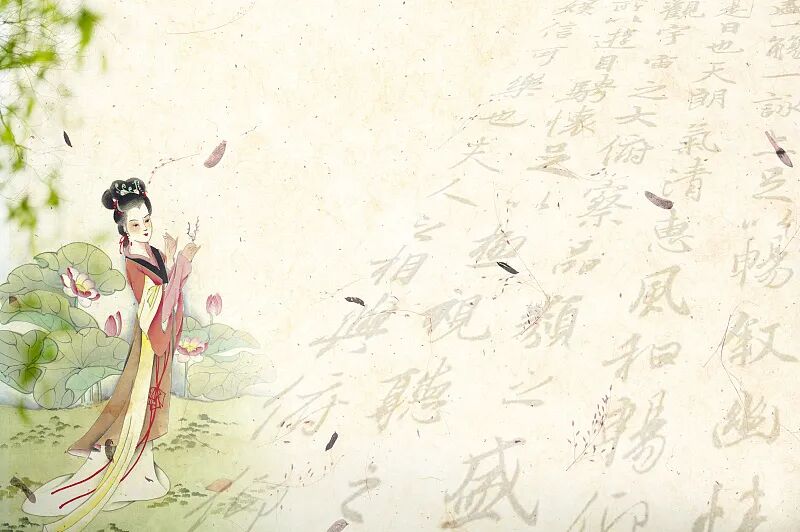 一觴一詠亦足以暢叙幽情
是日也天朗氣清惠風和暢仰
觀宇宙之大俯察品類之盛
所以遊目騁懷足以極視聽之
娛信可樂也夫人之相與俯仰